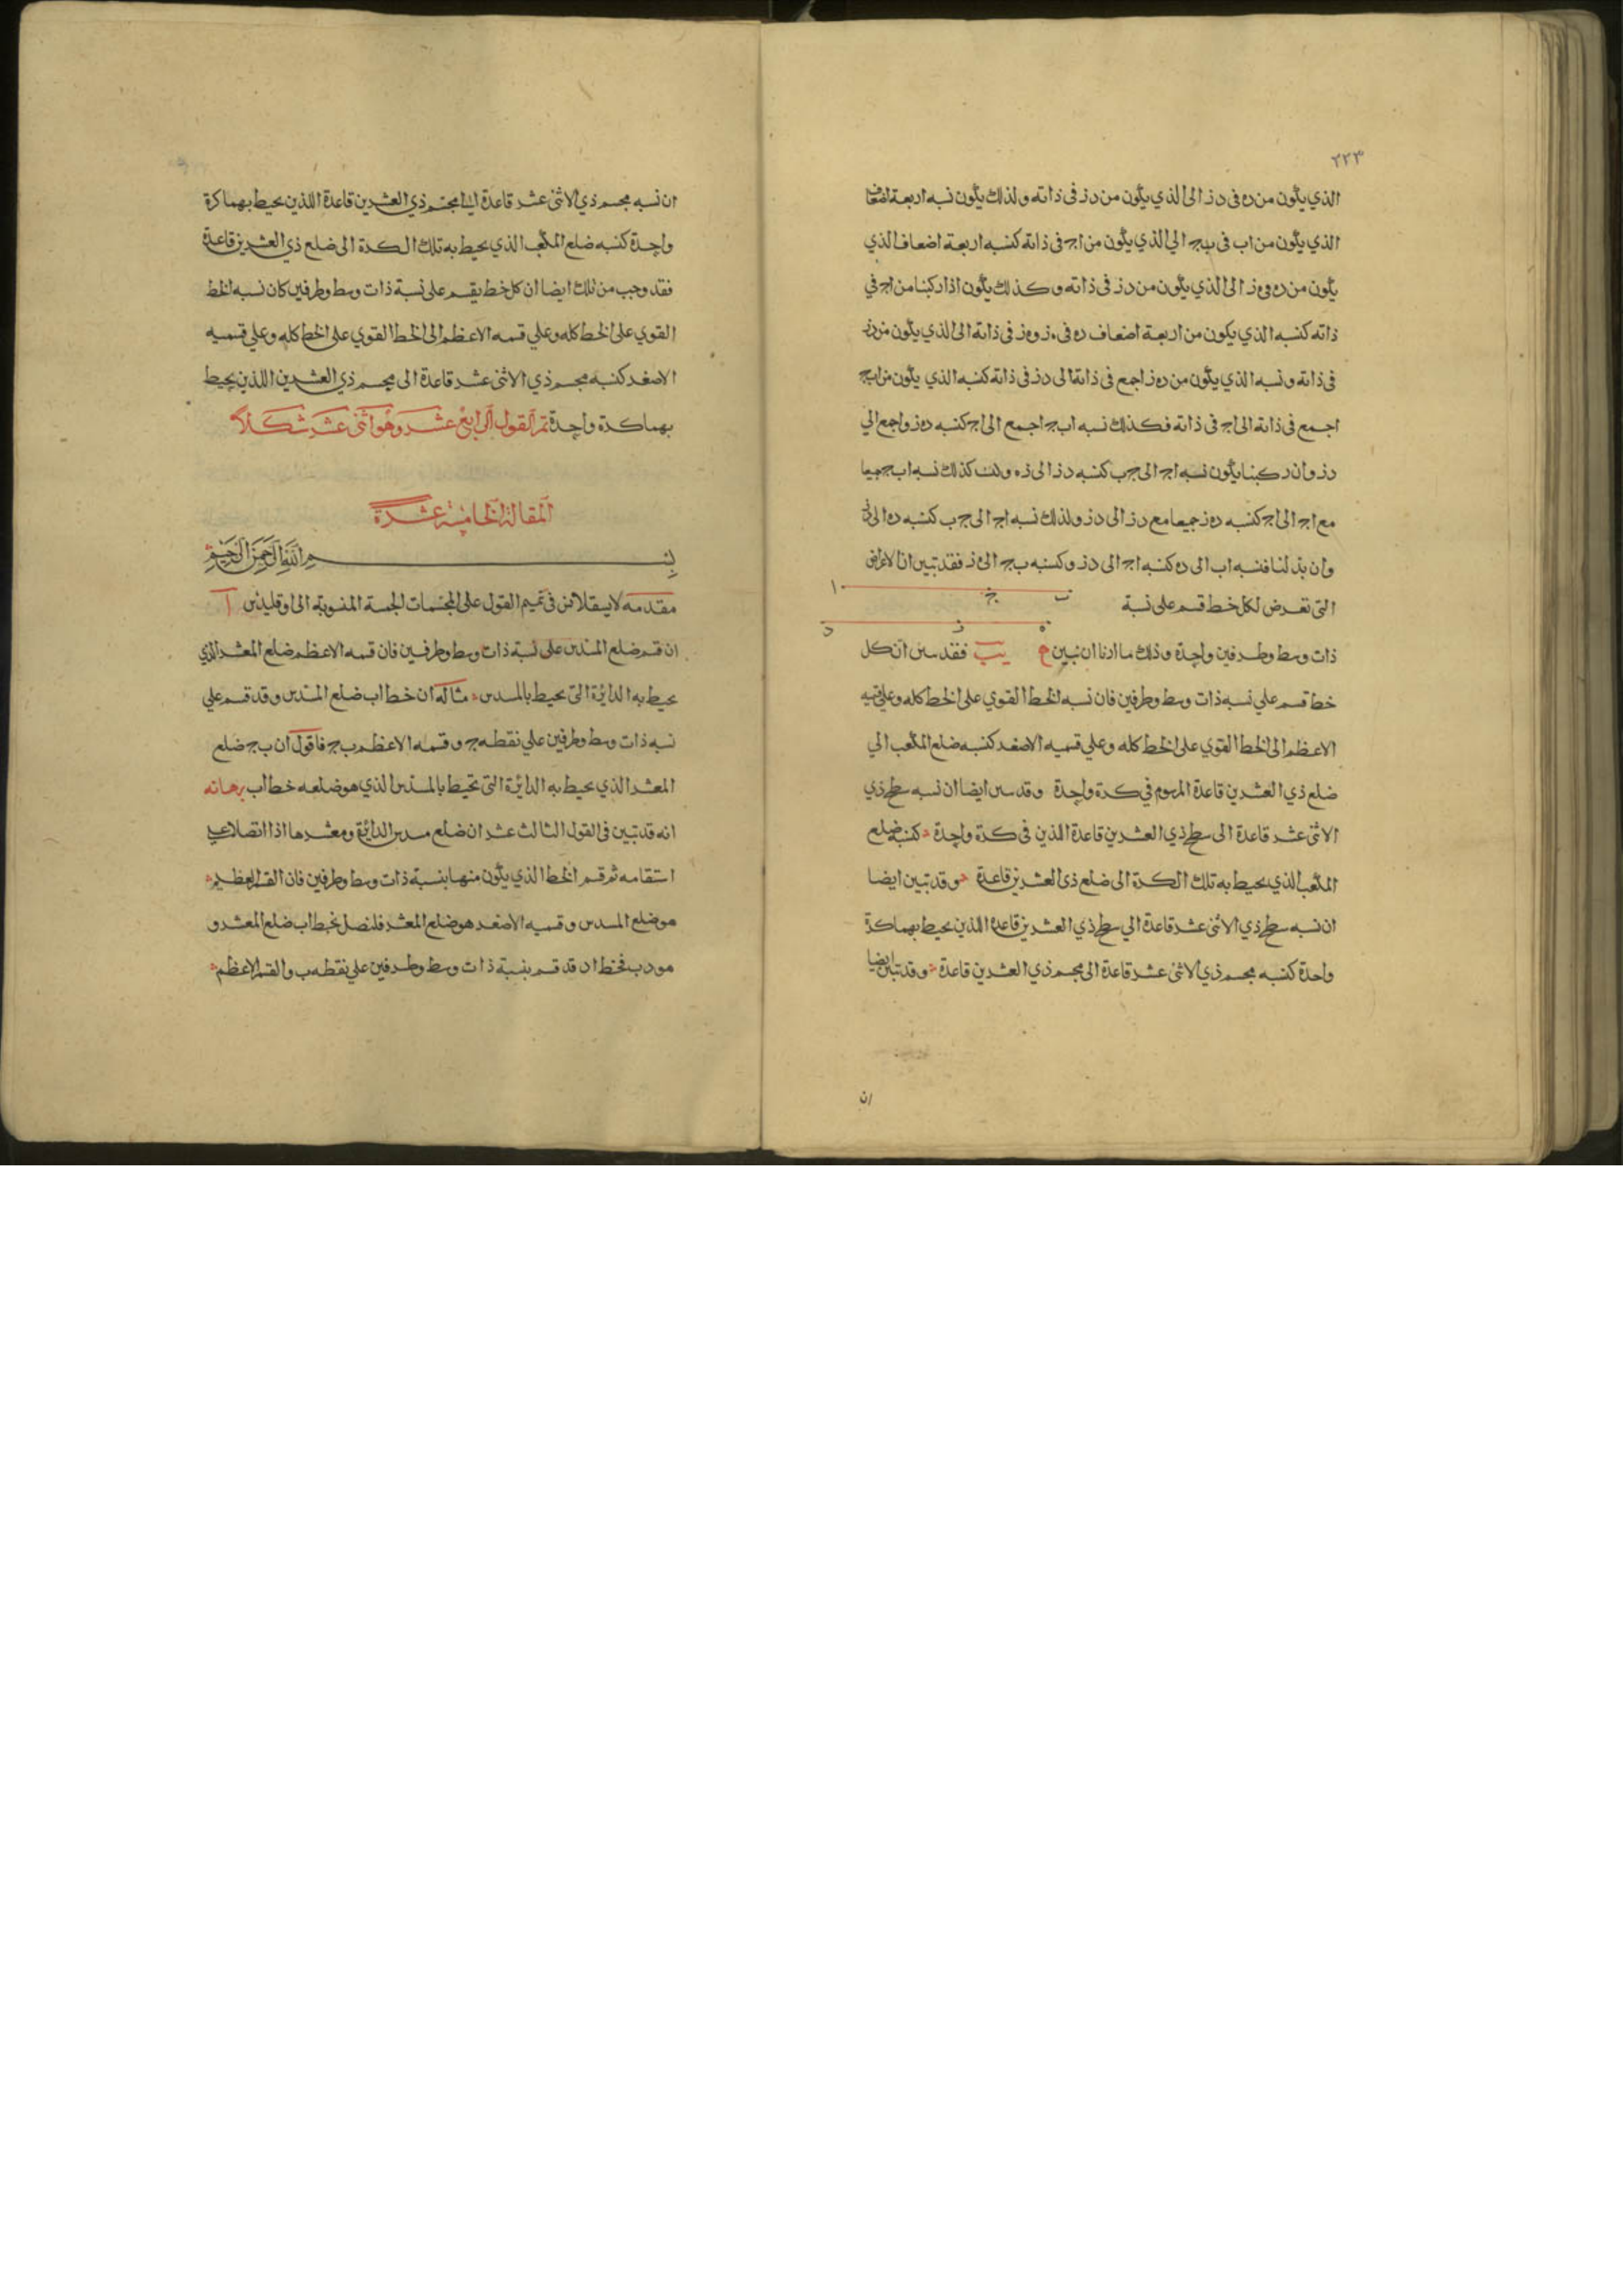 ٢٢٣
الذي يكون من ده في دز الى الذي يكون من دز في ذاته ولذلك يكون نسبه اربعة اضعاف
الذي يكون من اب في بج الي الذي يكون من اج في ذاته كنسبه اربعة اضعاف الذي
يكون من ده في ه ز الى الذي يكون من دز في ذاته وكذلك يكون اذا ركبنا من اج في
ذاته كنسبه الذي يكون من اربعة اضعاف ده في ه ز وه ز في ذاته الى الذي يكون من دز
في ذاته ونسبه الذي يكون من ده ز اجمع في ذاته الى دز في ذاته كنسبه الذي يكون من ابج
اجمع في ذاته الى اج في ذاته فكذلك نسبه ابج اجمع الى اج كنسبه ده ز اجمع الي
دز وان ركبنا يكون نسبه اج الى جب كنسبه دز الى زه وكذلك نسبه اب جميعا
مع اج الى اج كنسبه ده ز جميعا مع دز الى دز ولذلك نسبه اج الى جب كنسبه ده الى
وان بدلنا فنسبه اب الى ده كنسبه اج الى دز وكنسبه بج الى ه ز فقد تبين ان الاعراض
ا ج ب
التى تعرض لكل خط قسم على نسبة
د ز ه
ذات وسط وطرفين واحدة وذلك ما اردنا ان نبين يب فقد تبين ان كل
خط قسم علي نسبه ذات وسط وطرفين فان نسبه الخط القوي على الخط كله وعلى قسمه
الاعظم الى الخط القوي على الخط كله وعلي قسمه الاصغر كنسبه ضلع المكعب الي
ضلع ذي العشرين قاعدة المرسوم في كرة واحدة وقد تبين ايضا ان نسبه سطح ذي
الاثنى عشر قاعدة الى سطح ذي العشرين قاعدة اللذين في كرة واحدة كنسبة ضلع
المكعب الذي يحيط به تلك الكرة الى ضلع ذى العشرين قاعدة وقد تبين ايضا
ان نسبه سطح ذي الاثنى عشر قاعدة الي سطح ذي العشرين قاعدة اللذين يحيط بهما كرة
واحدة كنسبه مجسم ذي الاثنى عشر قاعدة الى مجسم ذي العشرين قاعدة وقد تبين ايضا
ان
ان نسبه مجسم ذي الاثنى عشر قاعدة الى مجسم ذي العشرين قاعدة اللذين يحيط بهما كرة
واحدة كنسبه ضلع المكعب الذي يحيط به تلك الكرة الى ضلع ذي العشرين قاعدة
فقد وجب من ذلك ايضا ان كل خط يقسم على نسبة ذات وسط وطرفين كان نسبه الخط
القوي على الخط كله وعلي قسمه الاعظم الى الخط القوي على الخط كله وعلي قسميه
الاصغر كنسبه مجسم ذي الاثنى عشر قاعدة الى مجسم ذي العشرين اللذين يحيط
بهما كرة واحدة تم القول الرابع عشر وهو اثنى عشر شكلا
المقالة الخامسة عشرة
بسم الله الرحمن الرحيم
مقدمه لابسقلاس في تتميم القول على المجسمات الخمسة المنسوبة الى اوقليدس ا
ان قسم ضلع المسدس على نسبة ذات وسط وطرفين فان قسمه الاعظم ضلع المعشر الذي
يحيط به الدائرة التى يحيط بالمسدس مثاله ان خط اب ضلع المسدس وقد قسم علي
نسبه ذات وسط وطرفين علي نقطه ج وقسمه الاعظم بج فاقول ان بج ضلع
المعشر الذي يحيط به الدائرة التى تحيط بالمسدس الذي هو ضلعه خط اب برهانه
انه قد تبين في القول الثالث عشر ان ضلع مسدس الدائرة ومعشرها اذا اتصلا على
استقامه ثم قسم الخط الذي يكون منهما بنسبة ذات وسط وطرفين فان القسم العظيم
هو ضلع المسدس وقسميه الاصغر هو ضلع المعشر فلنصل بخط اب ضلع المعشر و
هو دب فخط اد قد قسم بنسبة ذات وسط وطرفين علي نقطه ب والقسم الاعظم